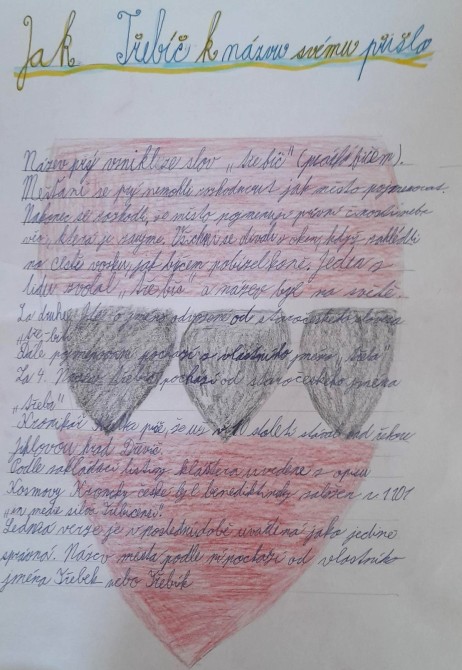 Jak Třebíč k názvu svému přišla
Název prý vznikl ze slov „třebič" (práskl bičem).
Měšťané se prý nemohli rozhodnout jak místo pojmenovat.
Nakonec se rozhodli, že místo pojmenuje první činnost nebo
věc, která je zaujme. Všichni se dívali z oken, když zahlédli
na cestě vozku, jak bičem pobízel koně. Jeden z
lidí zvolal „třebič" a název byl na světě.
Za druhé od staročeského slova
Dále pojmenování pochází z vlastního jména „třeba"
Za 4. Třebíč pochází od staročeského jména
„třeba"
Kronikář píše, že už v 10 století stával nad řekou
Jihlavou hrad
Podle zakládací listiny kláštera uvedené z opisu
Kosmovy Kroniky české byl benediktinský založen r 1101
Lednia verze je v poslední době uváděna jako jediné
správná. Název města podle ní pochází od vlastního
jména Třebek nebo Třebík